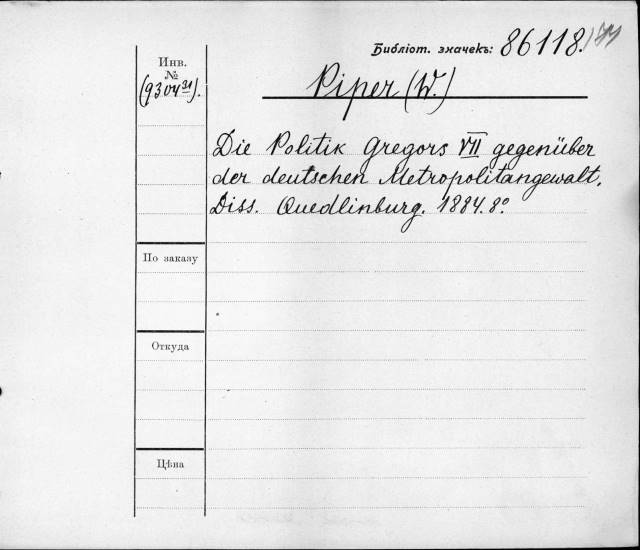 Библіот. значекъ: 86118.
Инв.
№
Piper (W.)
Die Politik Gregors VII gegenüber
der deutschen Metropolitangewalt.
Diss. Quedlinburg. 1884. 8º
По заказу
Откуда
Цѣна